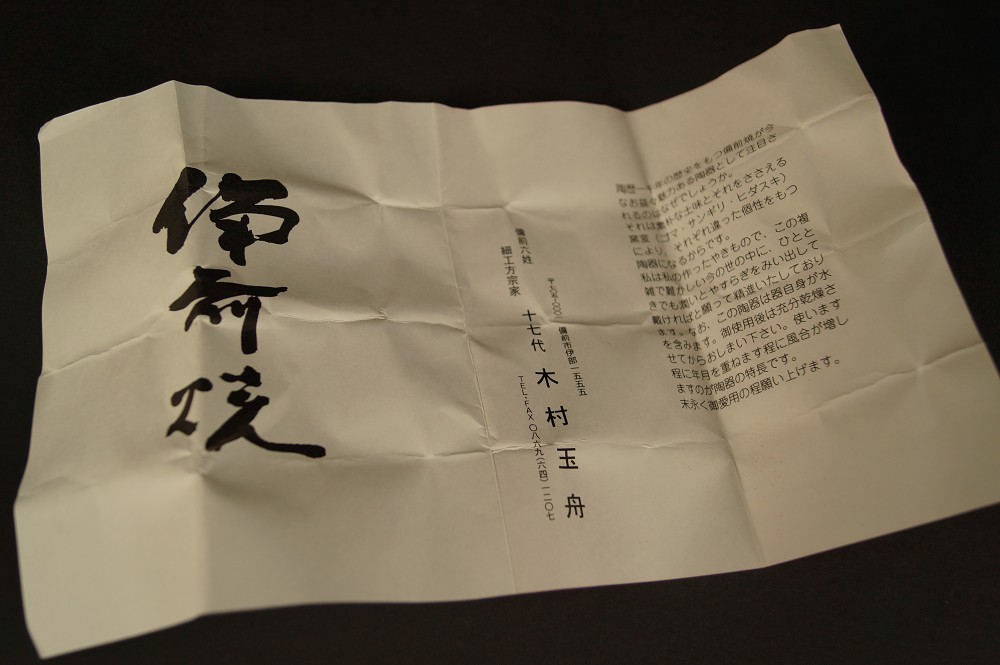 備前焼
備前六姓
細工方宗家
十七代 木村玉舟
〒七〇五-〇〇〇一 備前市伊部一五五五
TEL・FAX 〇八六九(六四)一二〇七
陶歴一千年の歴史をもつ備前焼が今
なお益々魅力ある陶器として注目さ
れるのはなぜでしょうか。
それは素朴な土味とそれをささえる
窯変(ゴマ・サンギリ・ヒダスキ)
により、それぞれ違った個性をもつ
陶器になるからです。
私は私の作ったやきもので、この複
雑で難かしい今の世の中に、ひとと
きでも潤いとやすらぎをみい出して
戴ければと願って精進いたしており
ます。なお、この陶器は器自身が水
を含みます。御使用後は充分乾燥さ
せてからおしまい下さい。使います
程に年月を重ねます程に風合が増し
ますのが陶器の特長です。
末永く御愛用の程願い上げます。